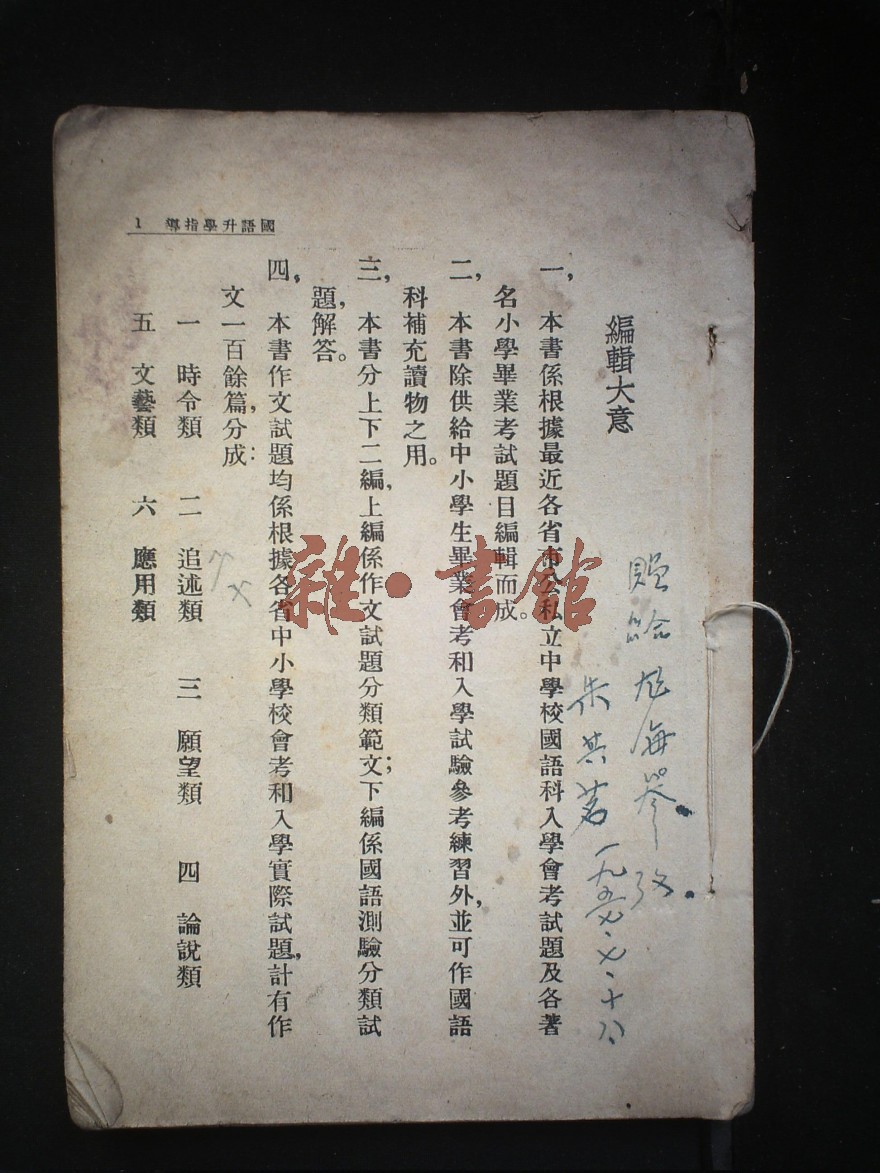 國語升學指導 1
編輯大意
一，本書係根據最近各省市公私立中學校國語科入學會考試題及各著
名小學畢業考試題目編輯而成。
二，本書除供給中小學生畢業會考和入學試驗參考練習外，並可作國語
科補充讀物之用。
三，本書分上下二編，上編係作文試題分類範文；下編係國語測驗分類試
題，解答。
四，本書作文試題均係根據各省中小學校會考和入學實際試題，計有作
文一百餘篇，分成：
一 時令類 二 追述類 三 願望類 四 論說類
五 文藝類 六 應用類
贈給 海參攷
朱其茗 一九五 ·七·十八
雜·書館